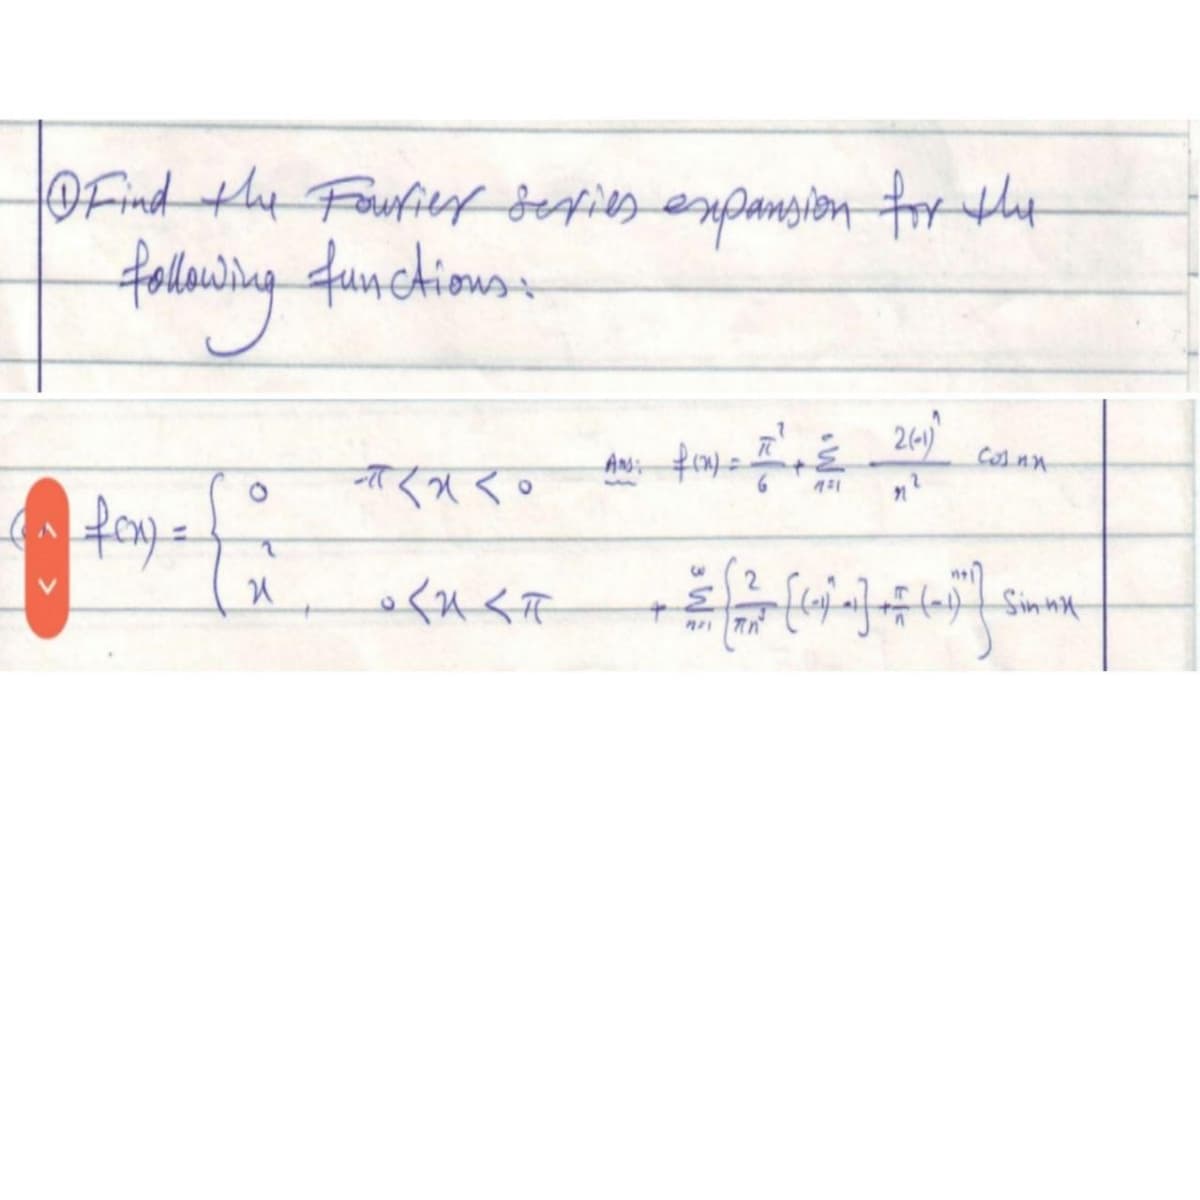 ① Find the Fourier series expansion for the
following functions:
f(x) = { 0 -π < x < 0
x², 0 < x < π
Ans: f(x) = π²/6 + Σ n=1 ∞ 2(-1)ⁿ/n² cos nx
+ Σ n=1 ∞ { 2/πn³ [(-1)ⁿ-1] + π/n (-1)ⁿ⁺¹ } Sin nx